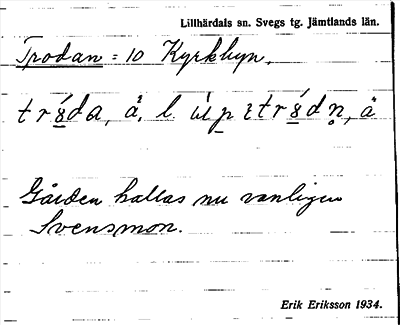 Lillhärdals sn. Svegs tg. Jämtlands län.
Trodan = 10 Kyrkbyn.
Gården kallas nu vanligen
Svensmon.
Erik Eriksson 1934.